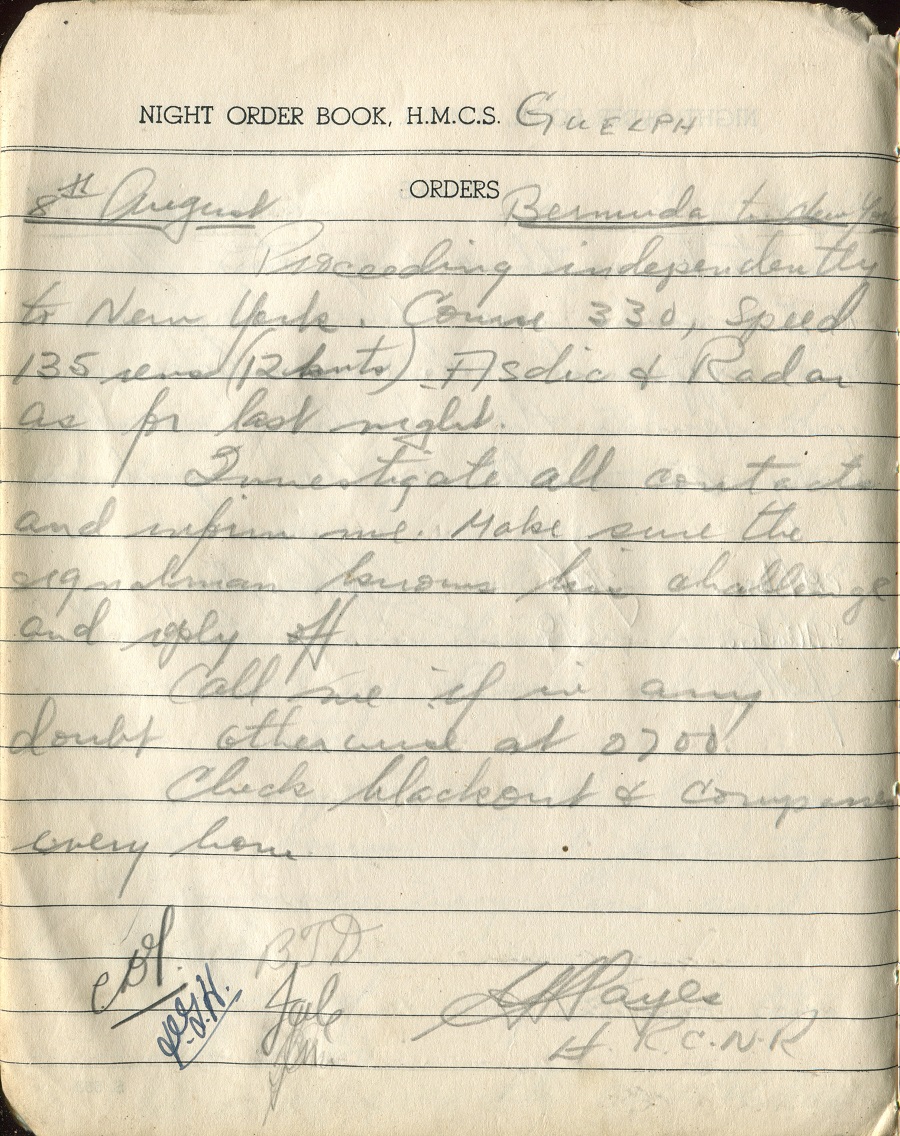 NIGHT ORDER BOOK, H.M.C.S. GUELPH
ORDERS
8TH August Bermuda to New York
Proceeding independently
to New York. Course 330, Speed
135 revs (12 knts). Asdic & Radar
as for last night.
Investigate all contacts
and inform me. Make sure the
signalman knows his challenge
and reply off.
Call me if in any
doubt otherwise at 0700.
Check blackout & compasses
every hour
BTD
R.C.N.R